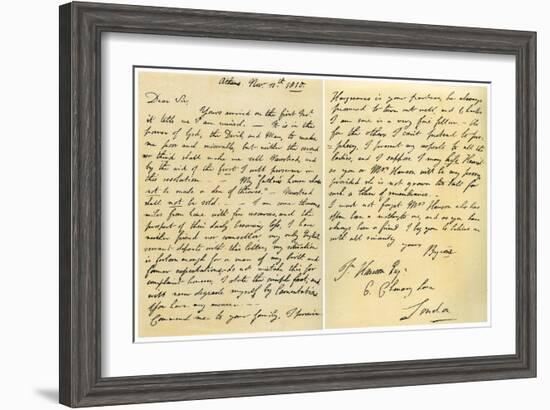 Athens Nov. 11th 1810.
Dear Sir,
Yours arrived on the first Inst
it tells me I am ruined. — It is in the
power of God, the Devil, and Man, to make
me poor and miserable, but neither the second
nor third shall make me sell Newstead, and
by the aid of the first I will persevere in
this resolution. — My "father's house shall
not be made a den of thieves." — Newstead
shall not be sold. — I am some thousand
miles from home with few resources, and the
prospect of their daily becoming less, I have
neither friend nor counsellor, my only English
servant departs with this letter, my situation
is forlorn enough for a man of my birth and
former expectations; — do not mistake this for
complaint however, I state the simple fact, and
will never degrade myself by lamentations.
You have my answer. —
Commend me to your family, I perceive
Hargreaves is your partner, he always
promised to turn out well, and
I am sure is a very fine fellow. — As
for the others I can't pretend to pro-
=phecy, I present my respects to all the
ladies, and I suppose I may kiss Harriet
as you or Mrs. Hanson will be my proxy,
provided she is not grown too tall for
such a token of remembrance.
I must not forget Mrs. Hanson who has
often been a mother to me, and as you have
always been a friend I beg you to believe me
with all sincerity
yours
Byron
Jn Hanson Esqr.
6. Chancery Lane
London